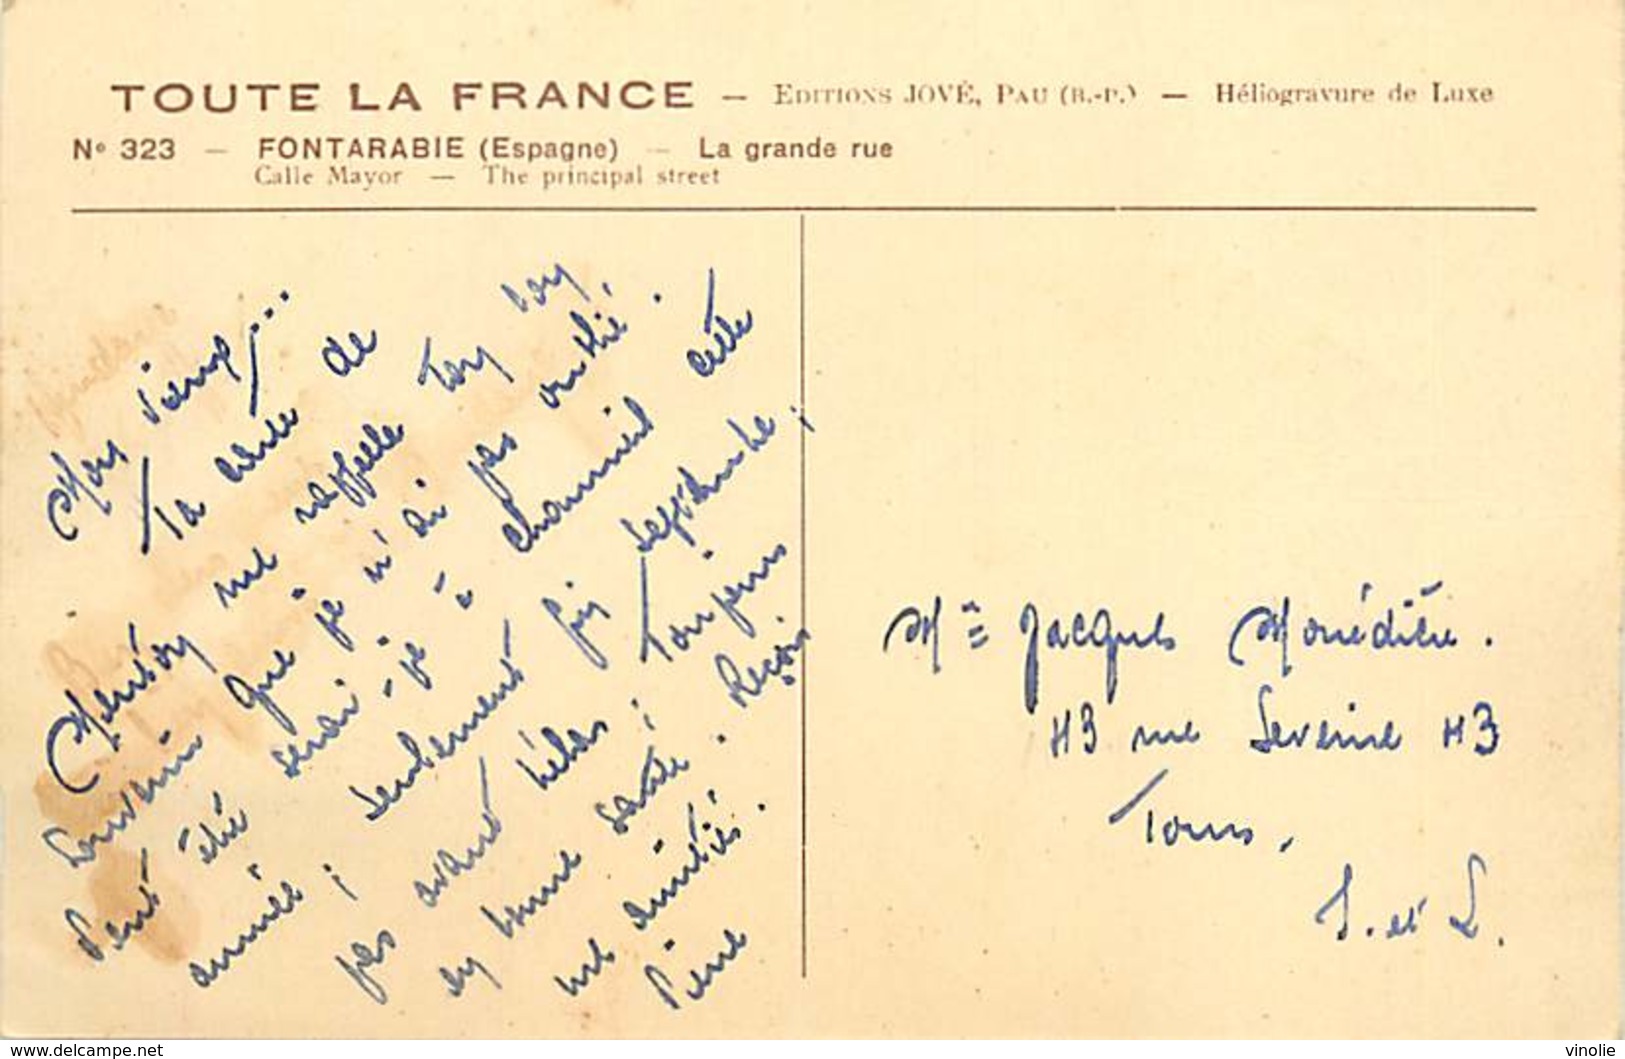 TOUTE LA FRANCE — EDITIONS JOVÉ, PAU (B.-P.) — Héliogravure de Luxe
N° 323 — FONTARABIE (Espagne) — La grande rue
Calle Mayor — The principal street
Mon vieux,
Ta carte de
Menton me rappelle ton bon
souvenir que je n'ai pas oublié.
Peut être serai-je à Chaumeil cette
année ; seulement fin septembre ;
pas avant hélas ; Toujours
en bonne santé. Reçois
mes amitiés.
Pierre
Mr Jacques Monédière.
43 rue Severine 43
Tours.
I. et L.
www.delcampe.net
vinolie